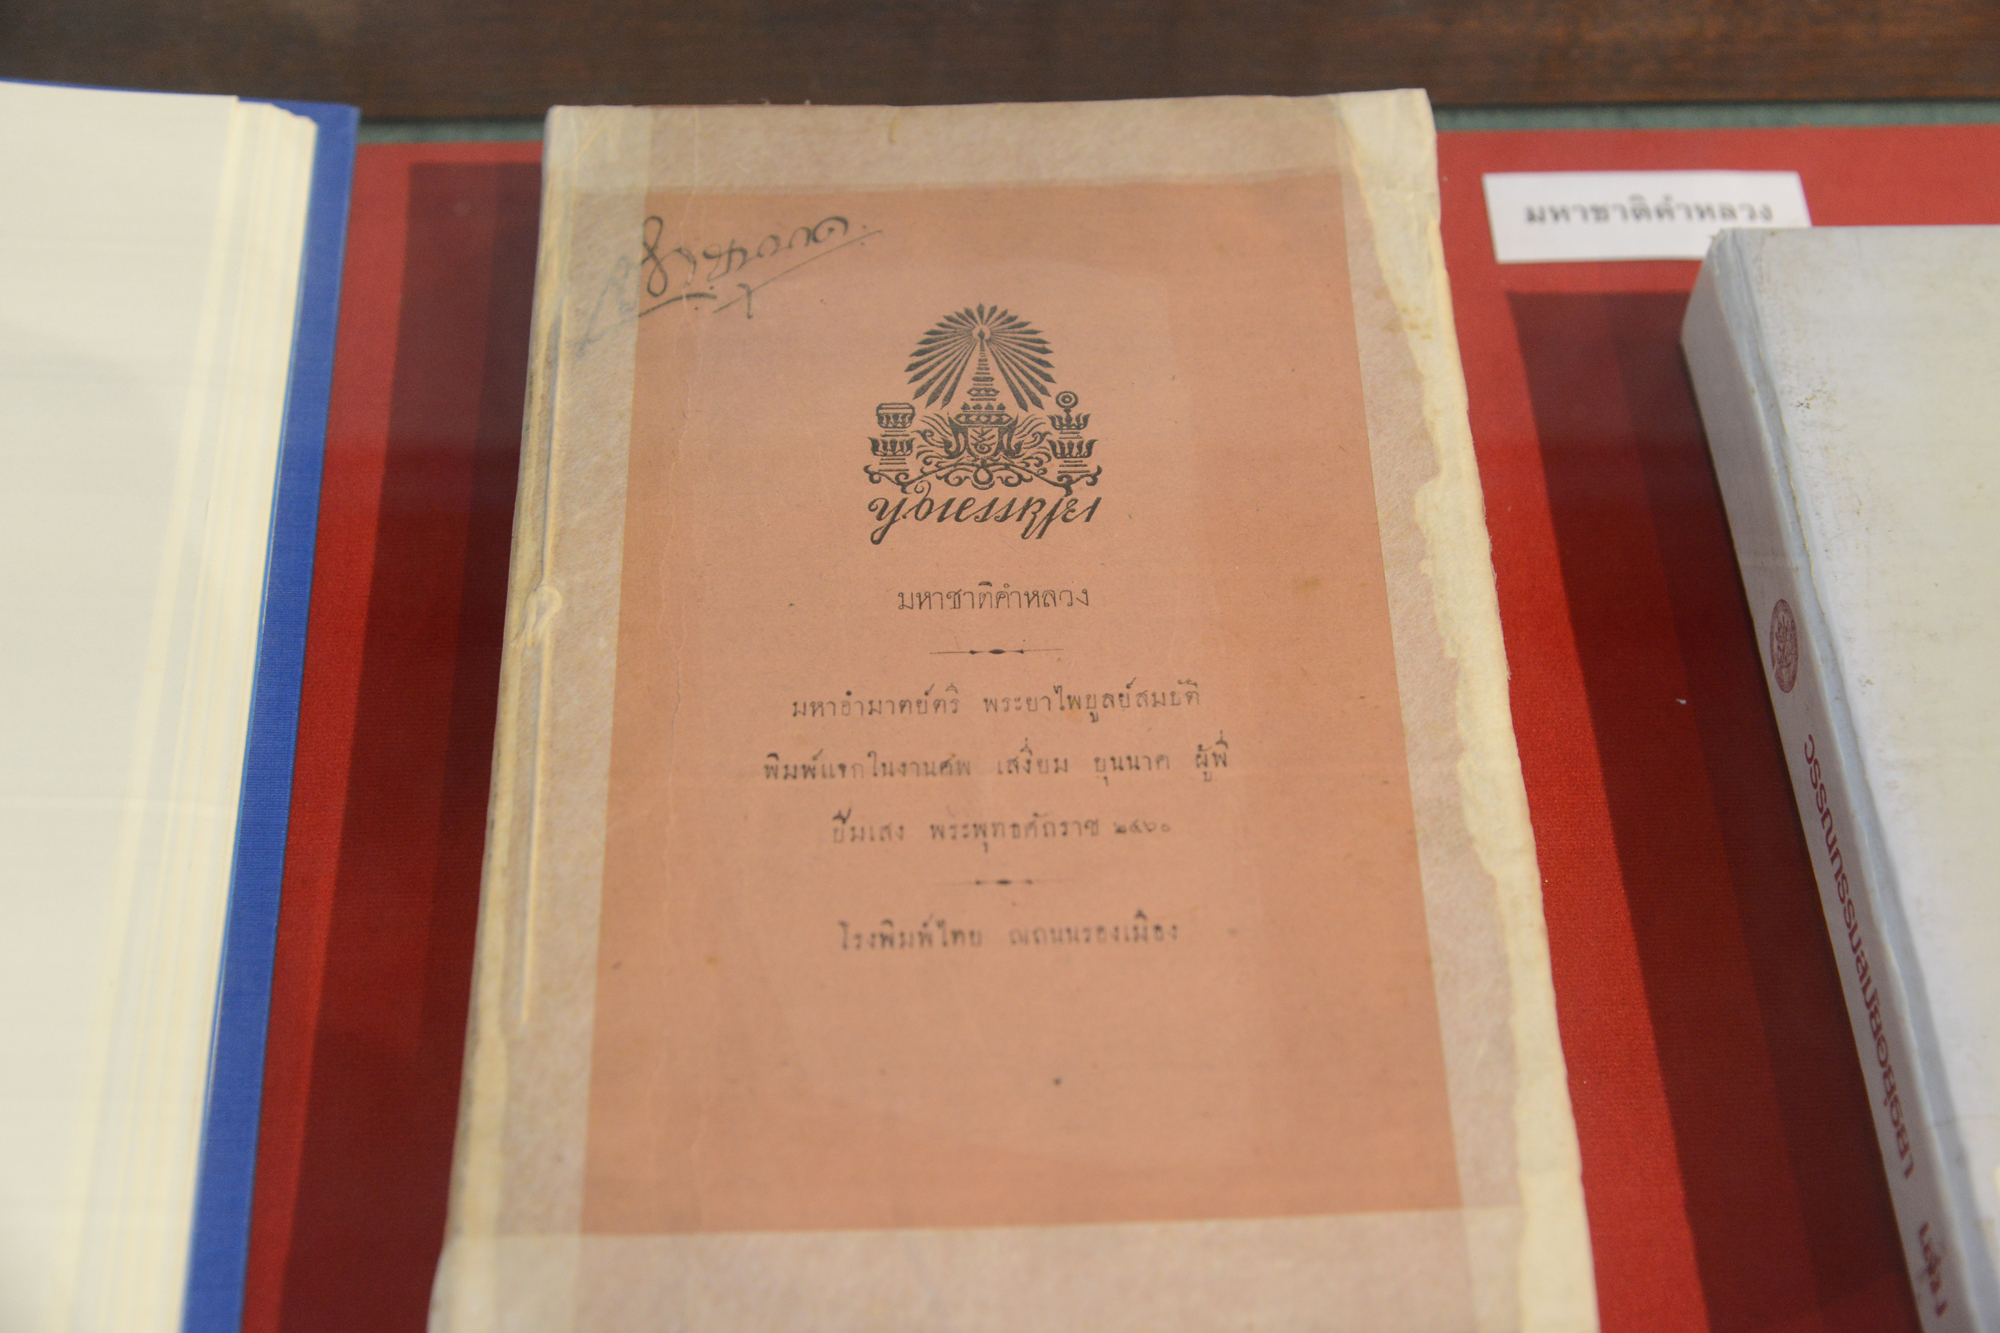 มหาชาติคำหลวง
มหาอำมาตย์ตรี พระยาไพบูลย์สมบัติ
พิมพ์แจกในงานศพ เสงี่ยม บุนนาค ผู้พี่
ปีมเสง พระพุทธศักราช ๒๔๖๐
โรงพิมพ์ไทย ณถนนรองเมือง
มหาชาติคำหลวง
วรรณกรรมสมัยอยุธยา